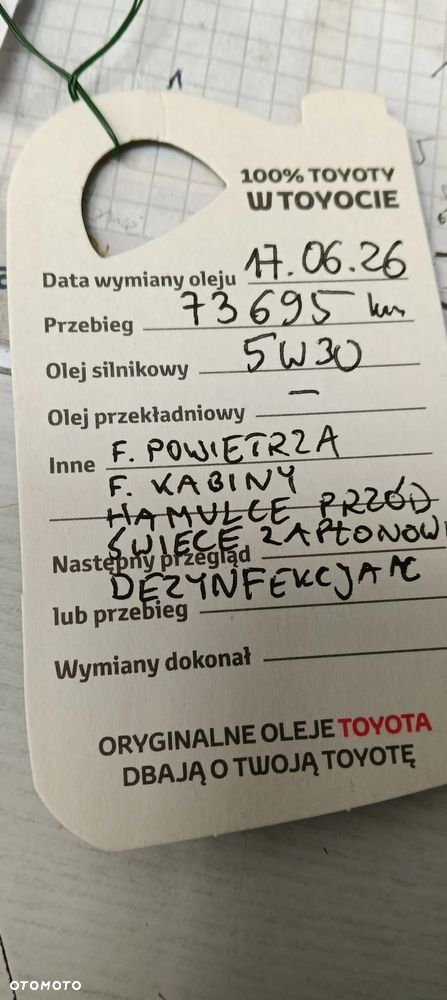 100% TOYOTY
W TOYOCIE
Data wymiany oleju 17.06.26
Przebieg 73695 km
Olej silnikowy 5W30
Olej przekładniowy —
Inne F. POWIETRZA
F. KABINY
HAMULCE PRZÓD
ŚWIECE ZAPŁONOW
Następny przegląd
DEZYNFEKCJA AC
lub przebieg
Wymiany dokonał
ORYGINALNE OLEJE TOYOTA
DBAJĄ O TWOJĄ TOYOTĘ
OTOMOTO